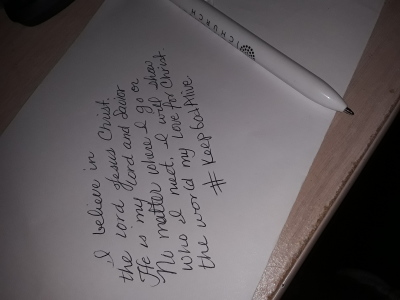 I believe in
the Lord Jesus Christ.
He is my Lord and Savior
No matter where I go or
who I meet. I will show
the world my love for Christ.
# KeepGodAlive
CHURCH